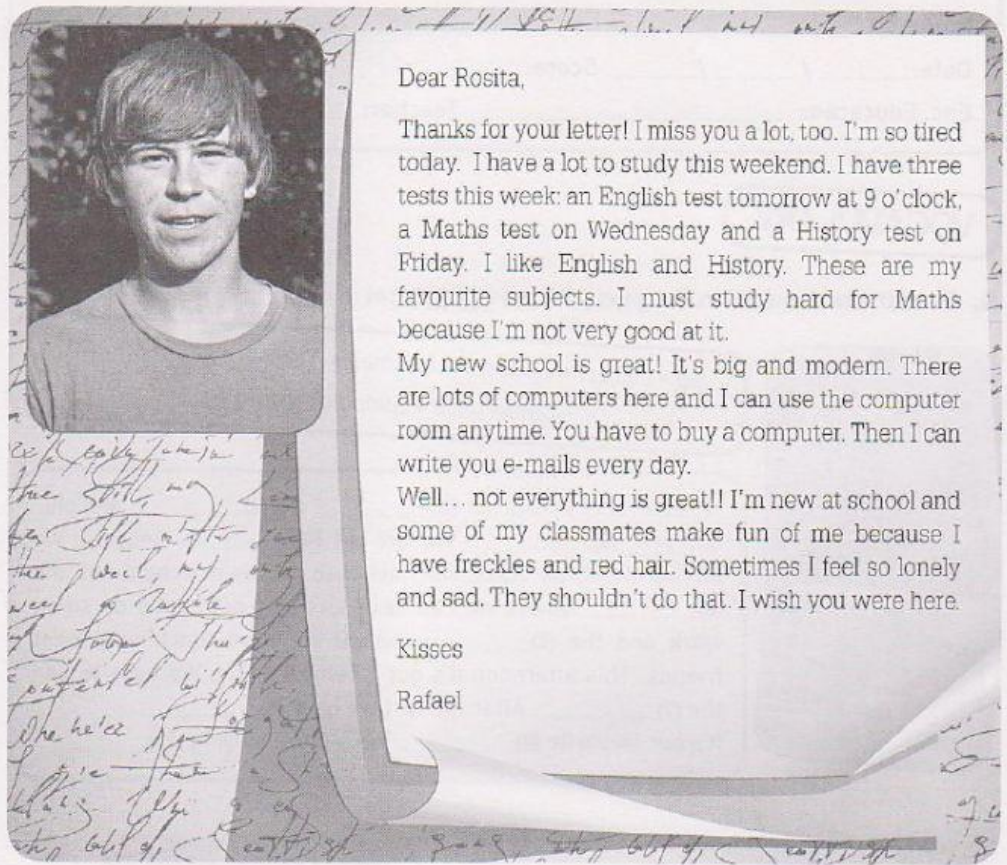 Dear Rosita,
Thanks for your letter! I miss you a lot, too. I'm so tired
today. I have a lot to study this weekend. I have three
tests this week: an English test tomorrow at 9 o'clock,
a Maths test on Wednesday and a History test on
Friday. I like English and History. These are my
favourite subjects. I must study hard for Maths
because I'm not very good at it.
My new school is great! It's big and modern. There
are lots of computers here and I can use the computer
room anytime. You have to buy a computer. Then I can
write you e-mails every day.
Well... not everything is great!! I'm new at school and
some of my classmates make fun of me because I
have freckles and red hair. Sometimes I feel so lonely
and sad. They shouldn't do that. I wish you were here.
Kisses
Rafael